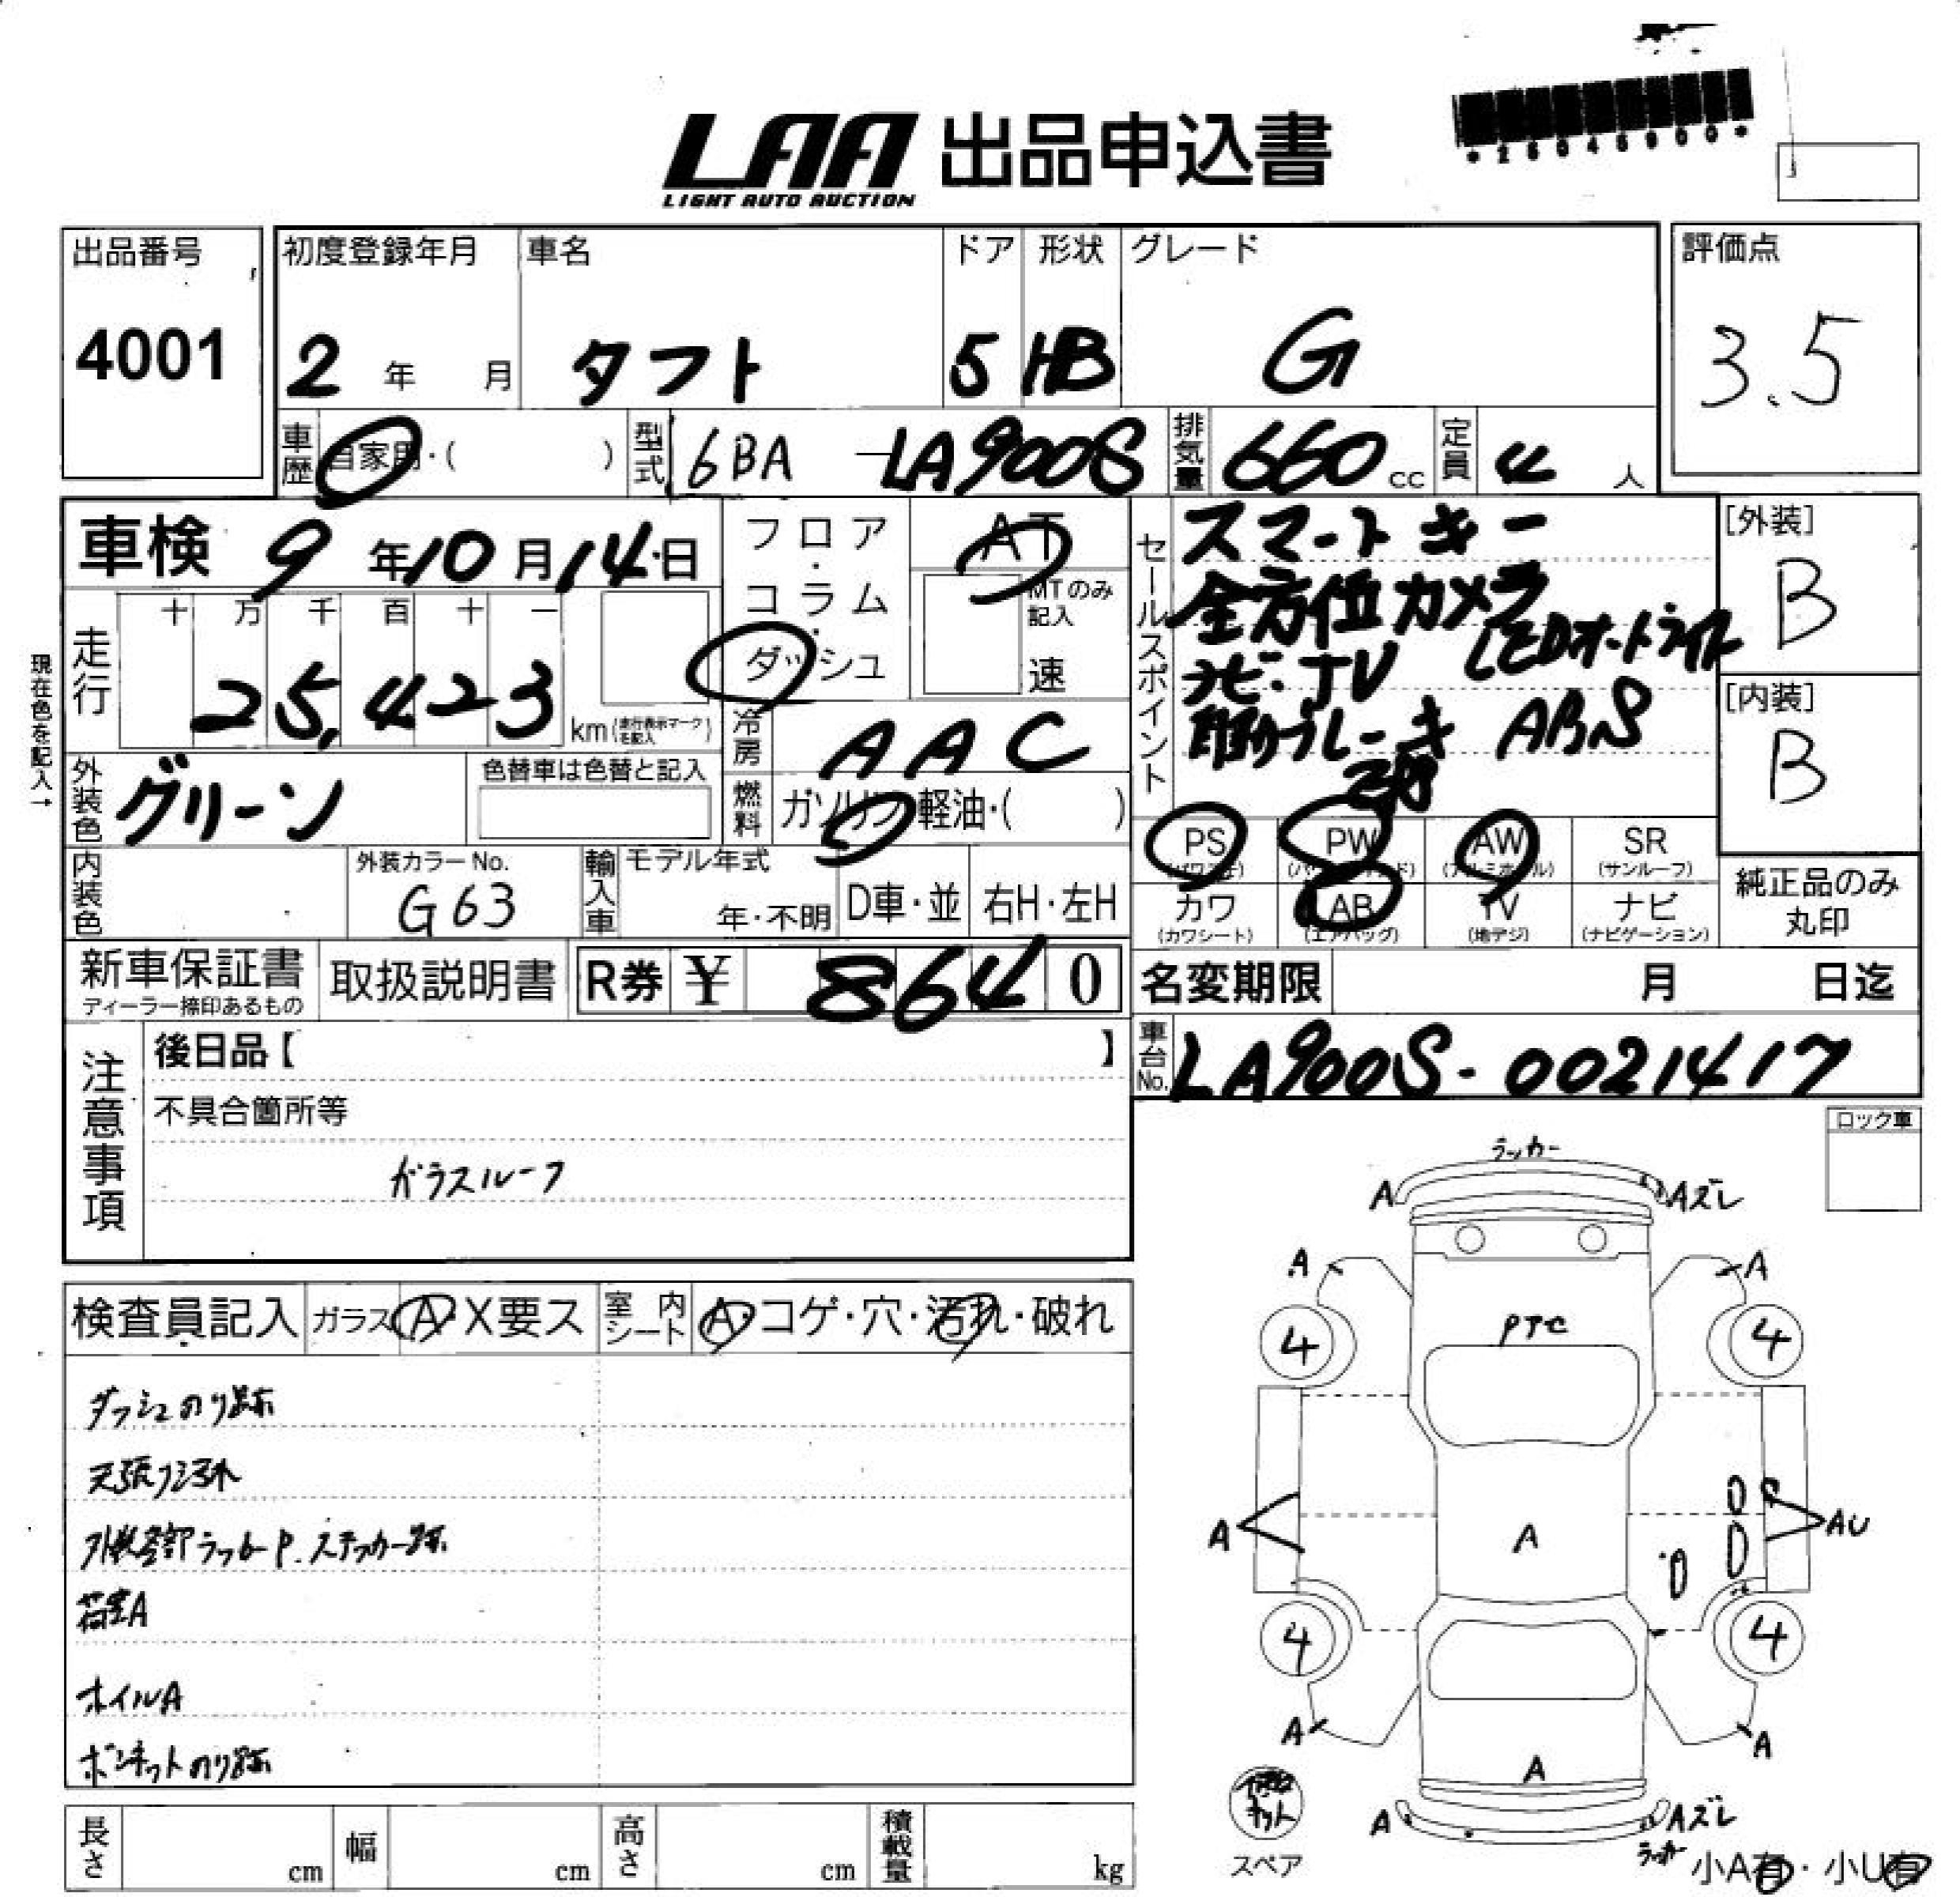 LAA 出品申込書
LIGHT AUTO AUCTION
出品番号
4001
初度登録年月
2 年 月
車名
タフト
ドア
5
形状
HB
グレード
G
評価点
3.5
車歴
自家用・( )
型式
6BA -LA900S
排気量
660 cc
定員
4 人
車検 9 年 10 月 14 日
フロア・コラム・ダッシュ
AT
MTのみ記入
速
セールスポイント
スマートキー
全方位カメラ
LEDオートライト
ナビ・TV
ABS
[外装]
B
[内装]
B
現在色を記入→
走行
十 万 千 百 十 一
25,423
km(走行表示マークを記入)
冷房
AAC
外装色
グリーン
色替車は色替と記入
燃料
ガソリン・軽油・( )
PS
PW
AW
(アルミホイール)
SR
(サンルーフ)
内装色
外装カラーNo.
G63
輸入車
モデル年式
年・不明
D車・並
右H・左H
カワ
(カワシート)
AB
(エアバッグ)
TV
(地デジ)
ナビ
(ナビゲーション)
純正品のみ
丸印
新車保証書
ディーラー捺印あるもの
取扱説明書
R券 ¥ 8640
名変期限 月 日迄
注意事項
後日品【 】
車台No.
LA900S-0021417
不具合箇所等
ガラスルーフ
ロック車
ラッカー
A
Aズレ
A
A
検査員記入
ガラス A・X要ス
室内シート A・コゲ・穴・汚れ・破れ
PTC
4
4
ダッシュのり跡
天張り汚れ
外装各部ラッカーP.ステッカー跡
A
A
AU
荷室A
4
4
ホイルA
A
A
ボンネットのり跡
A
キット
スペア
A
Aズレ
ラッカー
小A有・小U有
長さ cm
幅 cm
高さ cm
積載量 kg